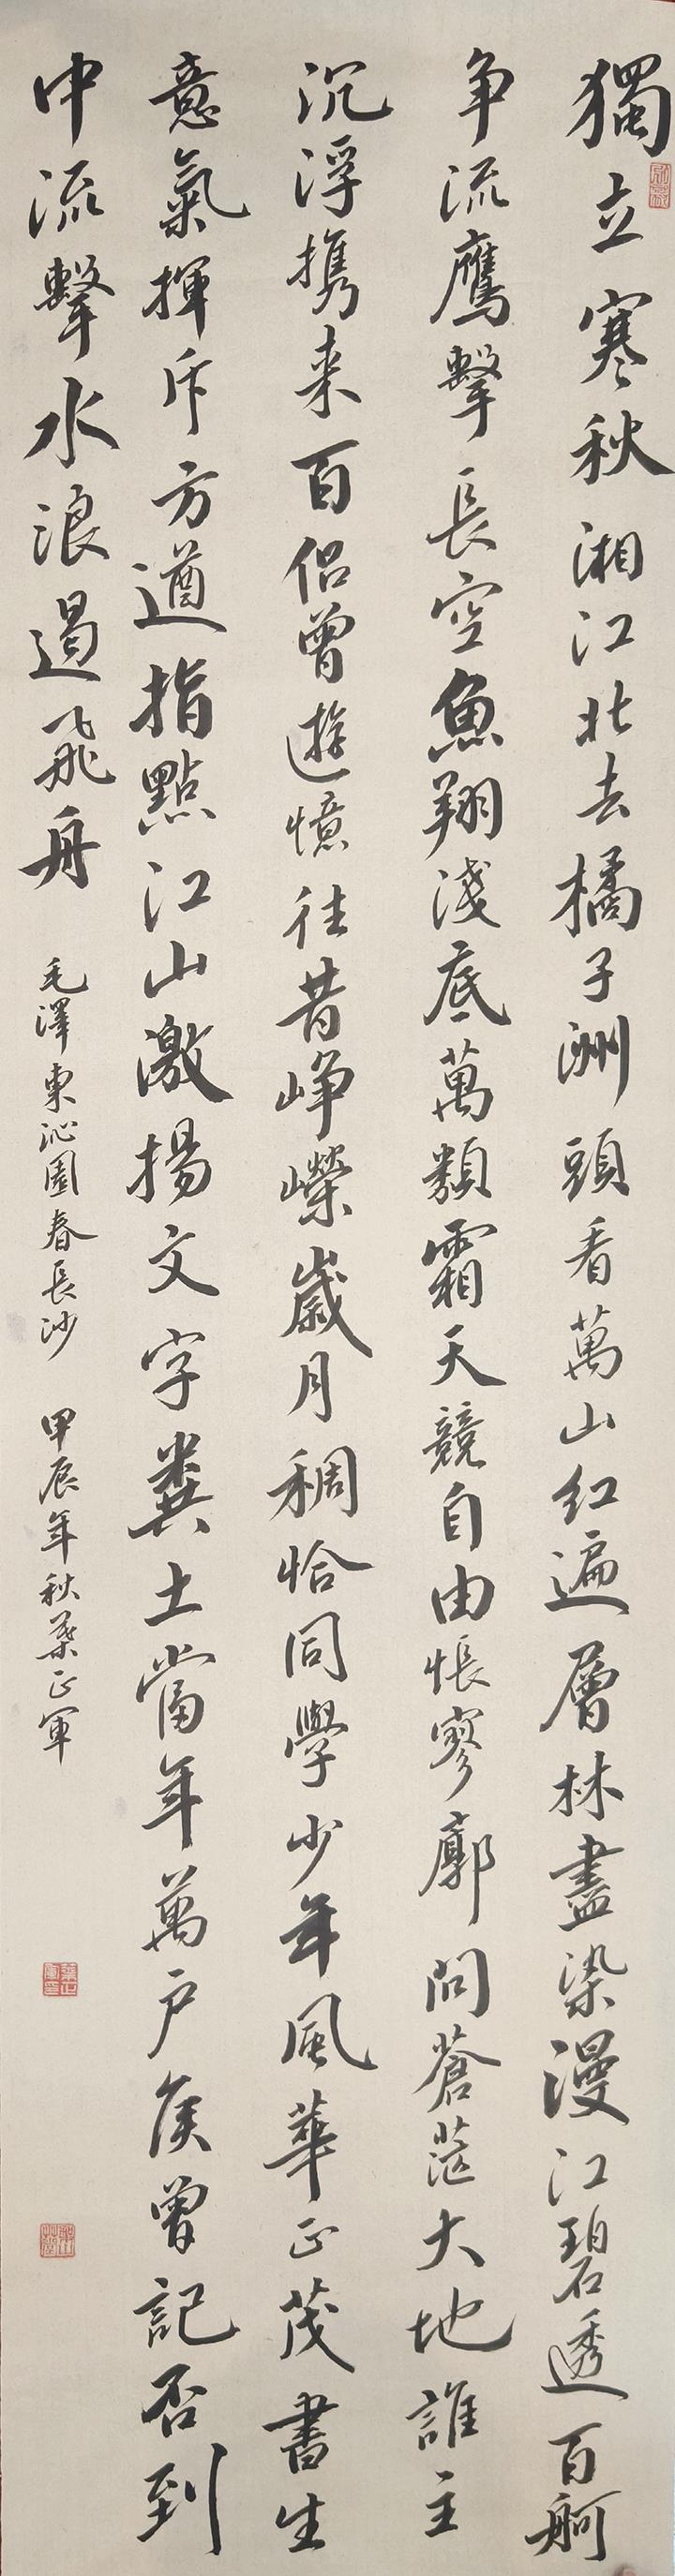 獨立寒秋湘江北去橘子洲頭看萬山紅遍層林盡染漫江碧透百舸
争流鷹擊長空魚翔淺底萬類霜天競自由悵寥廓問蒼茫大地誰主
沉浮携来百侣曾遊憶往昔崢嶸歲月稠恰同學少年風華正茂書生
意氣揮斥方遒指點江山激揚文字糞土當年萬户侯曾記否到
中流擊水浪遏飛舟
毛澤東沁園春長沙
甲辰年秋葉正軍